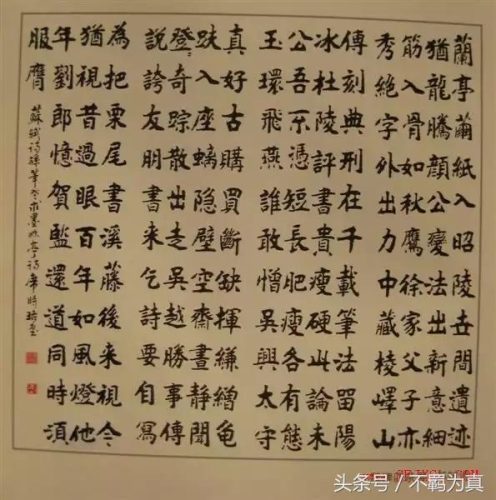 蘭亭繭紙入昭陵世間遺迹
猶龍騰顏公變法出新意細
筋入骨如秋鷹徐家父子亦
秀絕字外出力中藏棱嶧山
傳刻典刑在千載筆法留陽
冰杜陵評書貴瘦硬此論未
公吾不憑短長肥瘦各有態
玉環飛燕誰敢憎吳興太守
真好古購買斷缺揮縑繒龜
趺入座螭隱壁空齋晝靜聞
登〻奇踪散出走吳越勝事傳
說誇友朋書來乞詩要自寫
為把栗尾書溪藤後來視今
猶視昔過眼百年如風燈他
年劉郎憶賀監還道同時須
服膺
蘇軾詩孫莘老求墨妙亭詩 席時
头条号 / 不羁为真